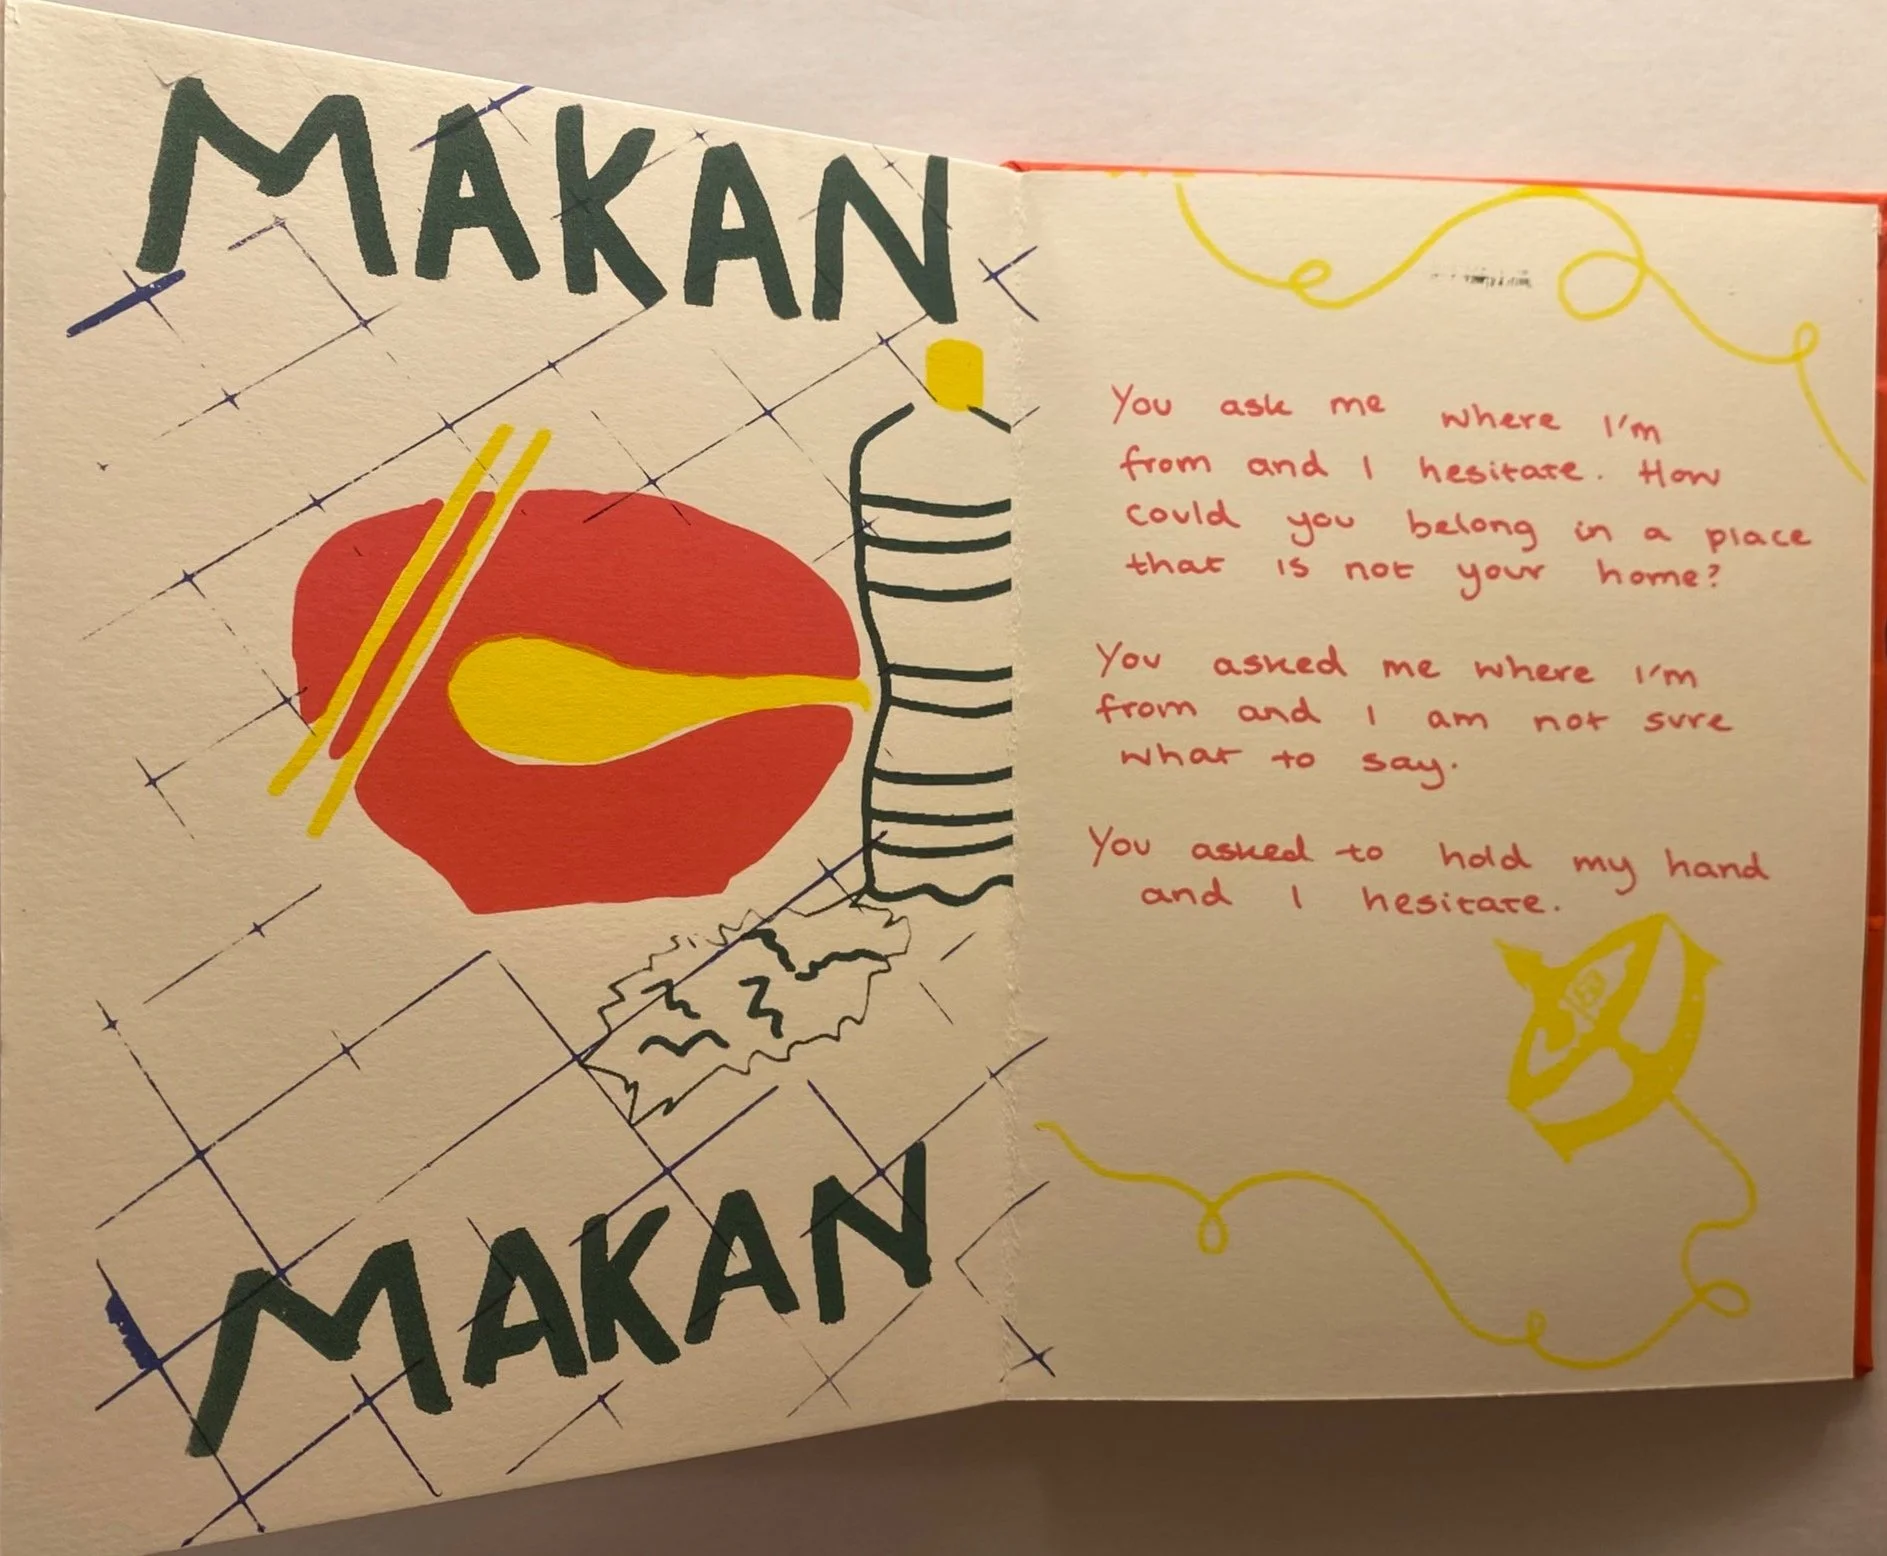 MAKAN
MAKAN
You ask me where I'm
from and I hesitate. How
could you belong in a place
that is not your home?
You asked me where I'm
from and I am not sure
what to say.
You asked to hold my hand
and I hesitate.